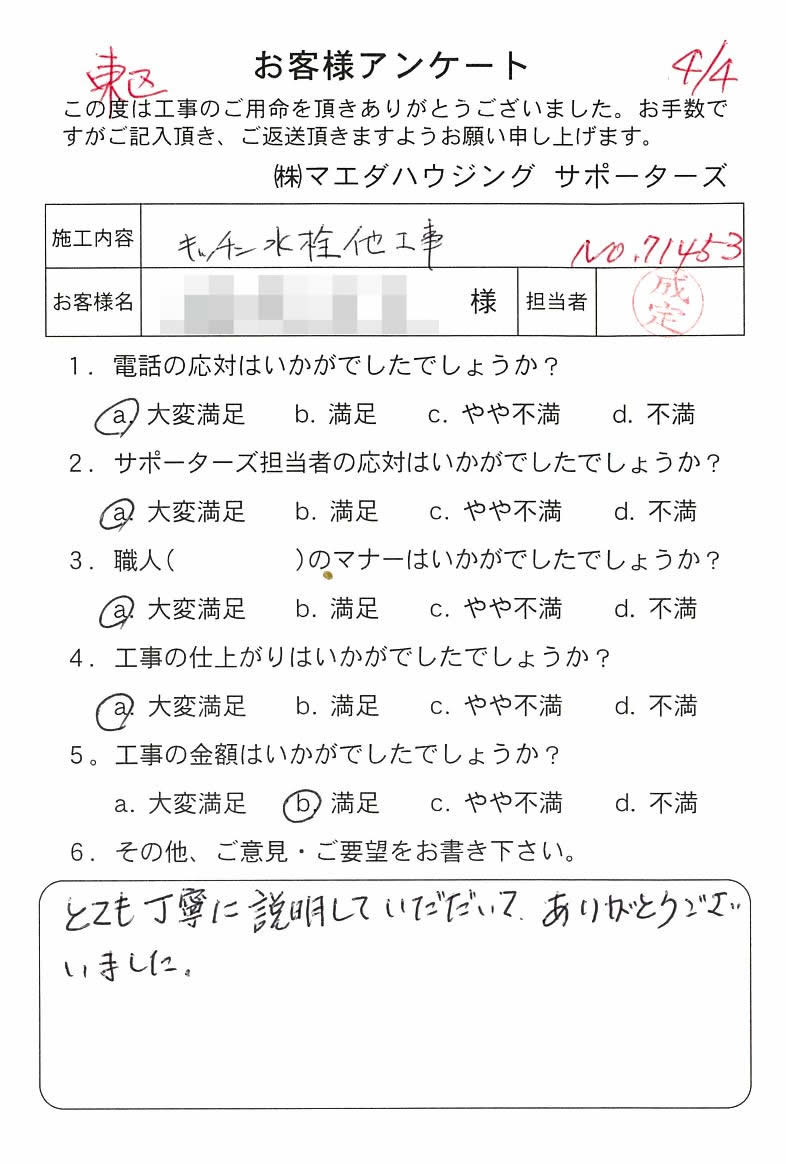 東区
お客様アンケート
4/4
この度は工事のご用命を頂きありがとうございました。お手数で
すがご記入頂き、ご返送頂きますようお願い申し上げます。
㈱マエダハウジング サポーターズ
施工内容 キッチン水栓他工事 NO.71453
お客様名 様 担当者 成定
1. 電話の応対はいかがでしたでしょうか?
a. 大変満足 b. 満足 c. やや不満 d. 不満
2. サポーターズ担当者の応対はいかがでしたでしょうか?
a. 大変満足 b. 満足 c. やや不満 d. 不満
3. 職人( )のマナーはいかがでしたでしょうか?
a. 大変満足 b. 満足 c. やや不満 d. 不満
4. 工事の仕上がりはいかがでしたでしょうか?
a. 大変満足 b. 満足 c. やや不満 d. 不満
5。工事の金額はいかがでしたでしょうか?
a. 大変満足 b. 満足 c. やや不満 d. 不満
6. その他、ご意見・ご要望をお書き下さい。
とても丁寧に説明していだだいて、ありがとうござ
いました。